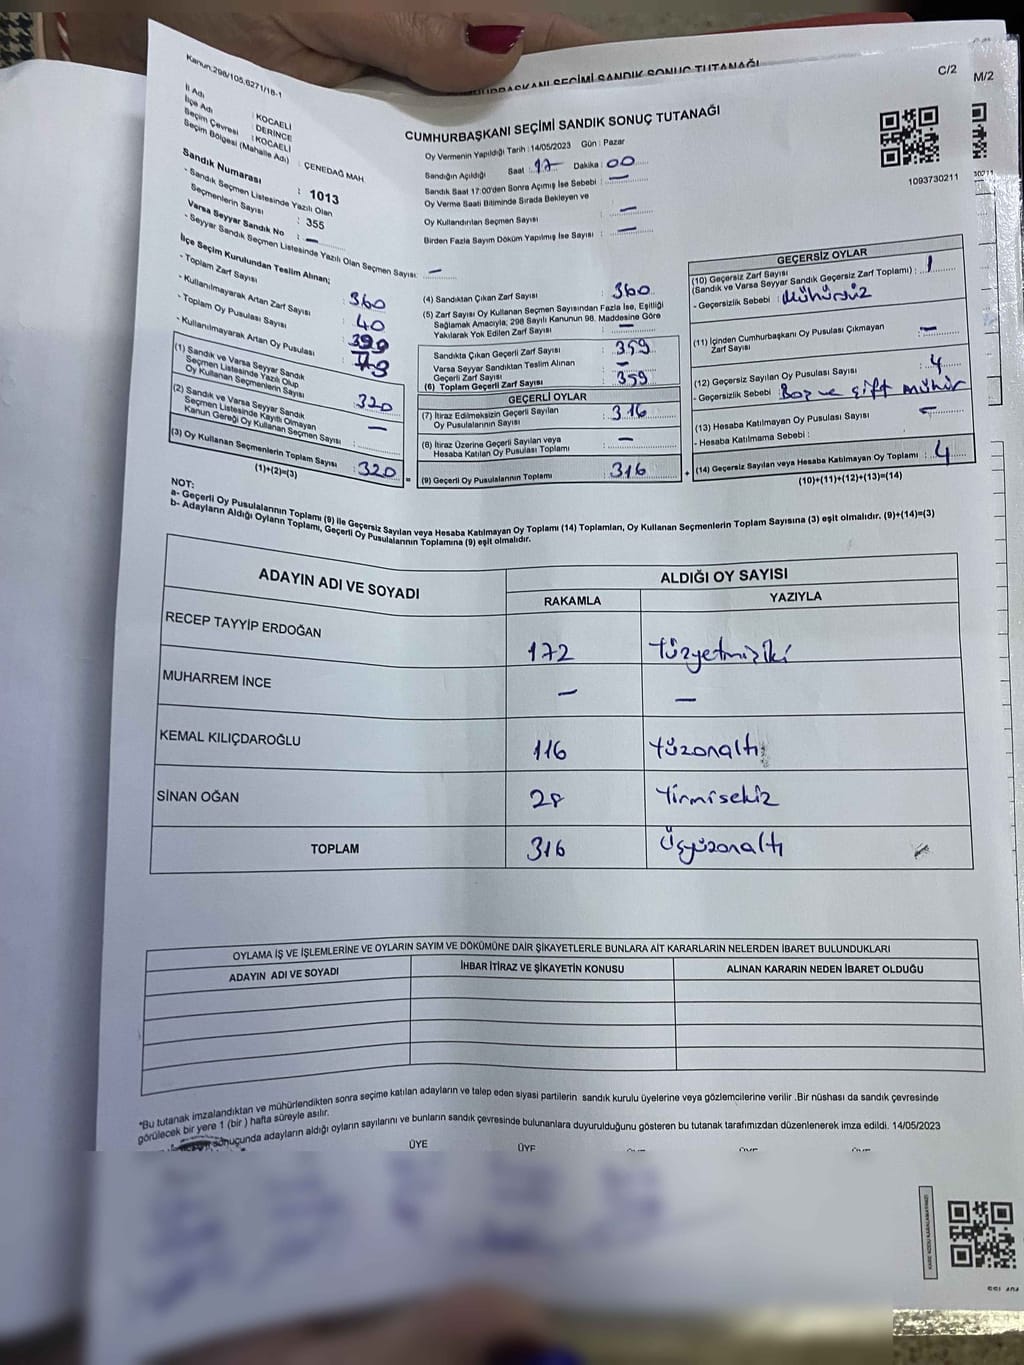 Kanun:298/105,6271/18-1
C/2
M/2
İl Adı : KOCAELİ
İlçe Adı : DERİNCE
Seçim Çevresi : KOCAELİ
Seçim Bölgesi (Mahalle Adı) : ÇENEDAĞ MAH.
CUMHURBAŞKANI SEÇİMİ SANDIK SONUÇ TUTANAĞI
Oy Vermenin Yapıldığı Tarih : 14/05/2023 Gün : Pazar
Sandığın Açıldığı Saat : 17 Dakika : 00
Sandık Saat 17:00'den Sonra Açımış İse Sebebi : —
Oy Verme Saati Bitiminde Sırada Bekleyen ve
Oy Kullandırılan Seçmen Sayısı : —
Birden Fazla Sayım Döküm Yapılmış İse Sayısı : —
1093730211
Sandık Numarası : 1013
- Sandık Seçmen Listesinde Yazılı Olan
Seçmenlerin Sayısı : 355
Varsa Seyyar Sandık No : —
- Seyyar Sandık Seçmen Listesinde Yazılı Olan Seçmen Sayısı: —
İlçe Seçim Kurulundan Teslim Alınan;
- Toplam Zarf Sayısı : 360
- Kullanılmayarak Artan Zarf Sayısı : 40
- Toplam Oy Pusulası Sayısı : 399
- Kullanılmayarak Artan Oy Pusulası :
(1) Sandık ve Varsa Seyyar Sandık
Seçmen Listesinde Yazılı Olup
Oy Kullanan Seçmenlerin Sayısı : 320
(2) Sandık ve Varsa Seyyar Sandık
Seçmen Listesinde Kayıtlı Olmayan
Kanun Gereği Oy Kullanan Seçmen Sayısı : —
(3) Oy Kullanan Seçmenlerin Toplam Sayısı : 320
(1)+(2)=(3)
(4) Sandıktan Çıkan Zarf Sayısı : 360
(5) Zarf Sayısı Oy Kullanan Seçmen Sayısından Fazla İse, Eşitliği
Sağlamak Amacıyla; 298 Sayılı Kanunun 98. Maddesine Göre
Yakılarak Yok Edilen Zarf Sayısı : —
Sandıkta Çıkan Geçerli Zarf Sayısı : 359
Varsa Seyyar Sandıktan Teslim Alınan
Geçerli Zarf Sayısı : —
(6) Toplam Geçerli Zarf Sayısı : 359
GEÇERLİ OYLAR
(7) İtiraz Edilmeksizin Geçerli Sayılan
Oy Pusulalarının Sayısı : 316
(8) İtiraz Üzerine Geçerli Sayılan veya
Hesaba Katılan Oy Pusulası Toplamı : —
(9) Geçerli Oy Pusulalarının Toplamı : 316
GEÇERSİZ OYLAR
(10) Geçersiz Zarf Sayısı
(Sandık ve Varsa Seyyar Sandık Geçersiz Zarf Toplamı) : 1
- Geçersizlik Sebebi : Mühürsüz
(11) İçinden Cumhurbaşkanı Oy Pusulası Çıkmayan
Zarf Sayısı : —
(12) Geçersiz Sayılan Oy Pusulası Sayısı : 4
- Geçersizlik Sebebi : Boş ve çift mühür
(13) Hesaba Katılmayan Oy Pusulası Sayısı : —
- Hesaba Katılmama Sebebi :
(14) Geçersiz Sayılan veya Hesaba Katılmayan Oy Toplamı : 4
(10)+(11)+(12)+(13)=(14)
NOT:
a- Geçerli Oy Pusulalarının Toplamı (9) ile Geçersiz Sayılan veya Hesaba Katılmayan Oy Toplamı (14) Toplamları, Oy Kullanan Seçmenlerin Toplam Sayısına (3) eşit olmalıdır. (9)+(14)=(3)
b- Adayların Aldığı Oyların Toplamı, Geçerli Oy Pusulalarının Toplamına (9) eşit olmalıdır.
ADAYIN ADI VE SOYADI ALDIĞI OY SAYISI
RAKAMLA YAZIYLA
RECEP TAYYİP ERDOĞAN 172 Yüzyetmişiki
MUHARREM İNCE — —
KEMAL KILIÇDAROĞLU 116 Yüzonaltı
SİNAN OĞAN 28 Yirmisekiz
TOPLAM 316 Üçyüzonaltı
OYLAMA İŞ VE İŞLEMLERİNE VE OYLARIN SAYIM VE DÖKÜMÜNE DAİR ŞİKAYETLERLE BUNLARA AİT KARARLARIN NELERDEN İBARET BULUNDUKLARI
ADAYIN ADI VE SOYADI İHBAR İTİRAZ VE ŞİKAYETİN KONUSU ALINAN KARARIN NEDEN İBARET OLDUĞU
*Bu tutanak imzalandıktan ve mühürlendikten sonra seçime katılan adayların ve talep eden siyasi partilerin sandık kurulu üyelerine veya gözlemcilerine verilir .Bir nüshası da sandık çevresinde
görülecek bir yere 1 (bir ) hafta süreyle asılır.
sonuçunda adayların aldığı oyların sayılarını ve bunların sandık çevresinde bulunanlara duyurulduğunu gösteren bu tutanak tarafımızdan düzenlenerek imza edildi. 14/05/2023
ÜYE ÜYE